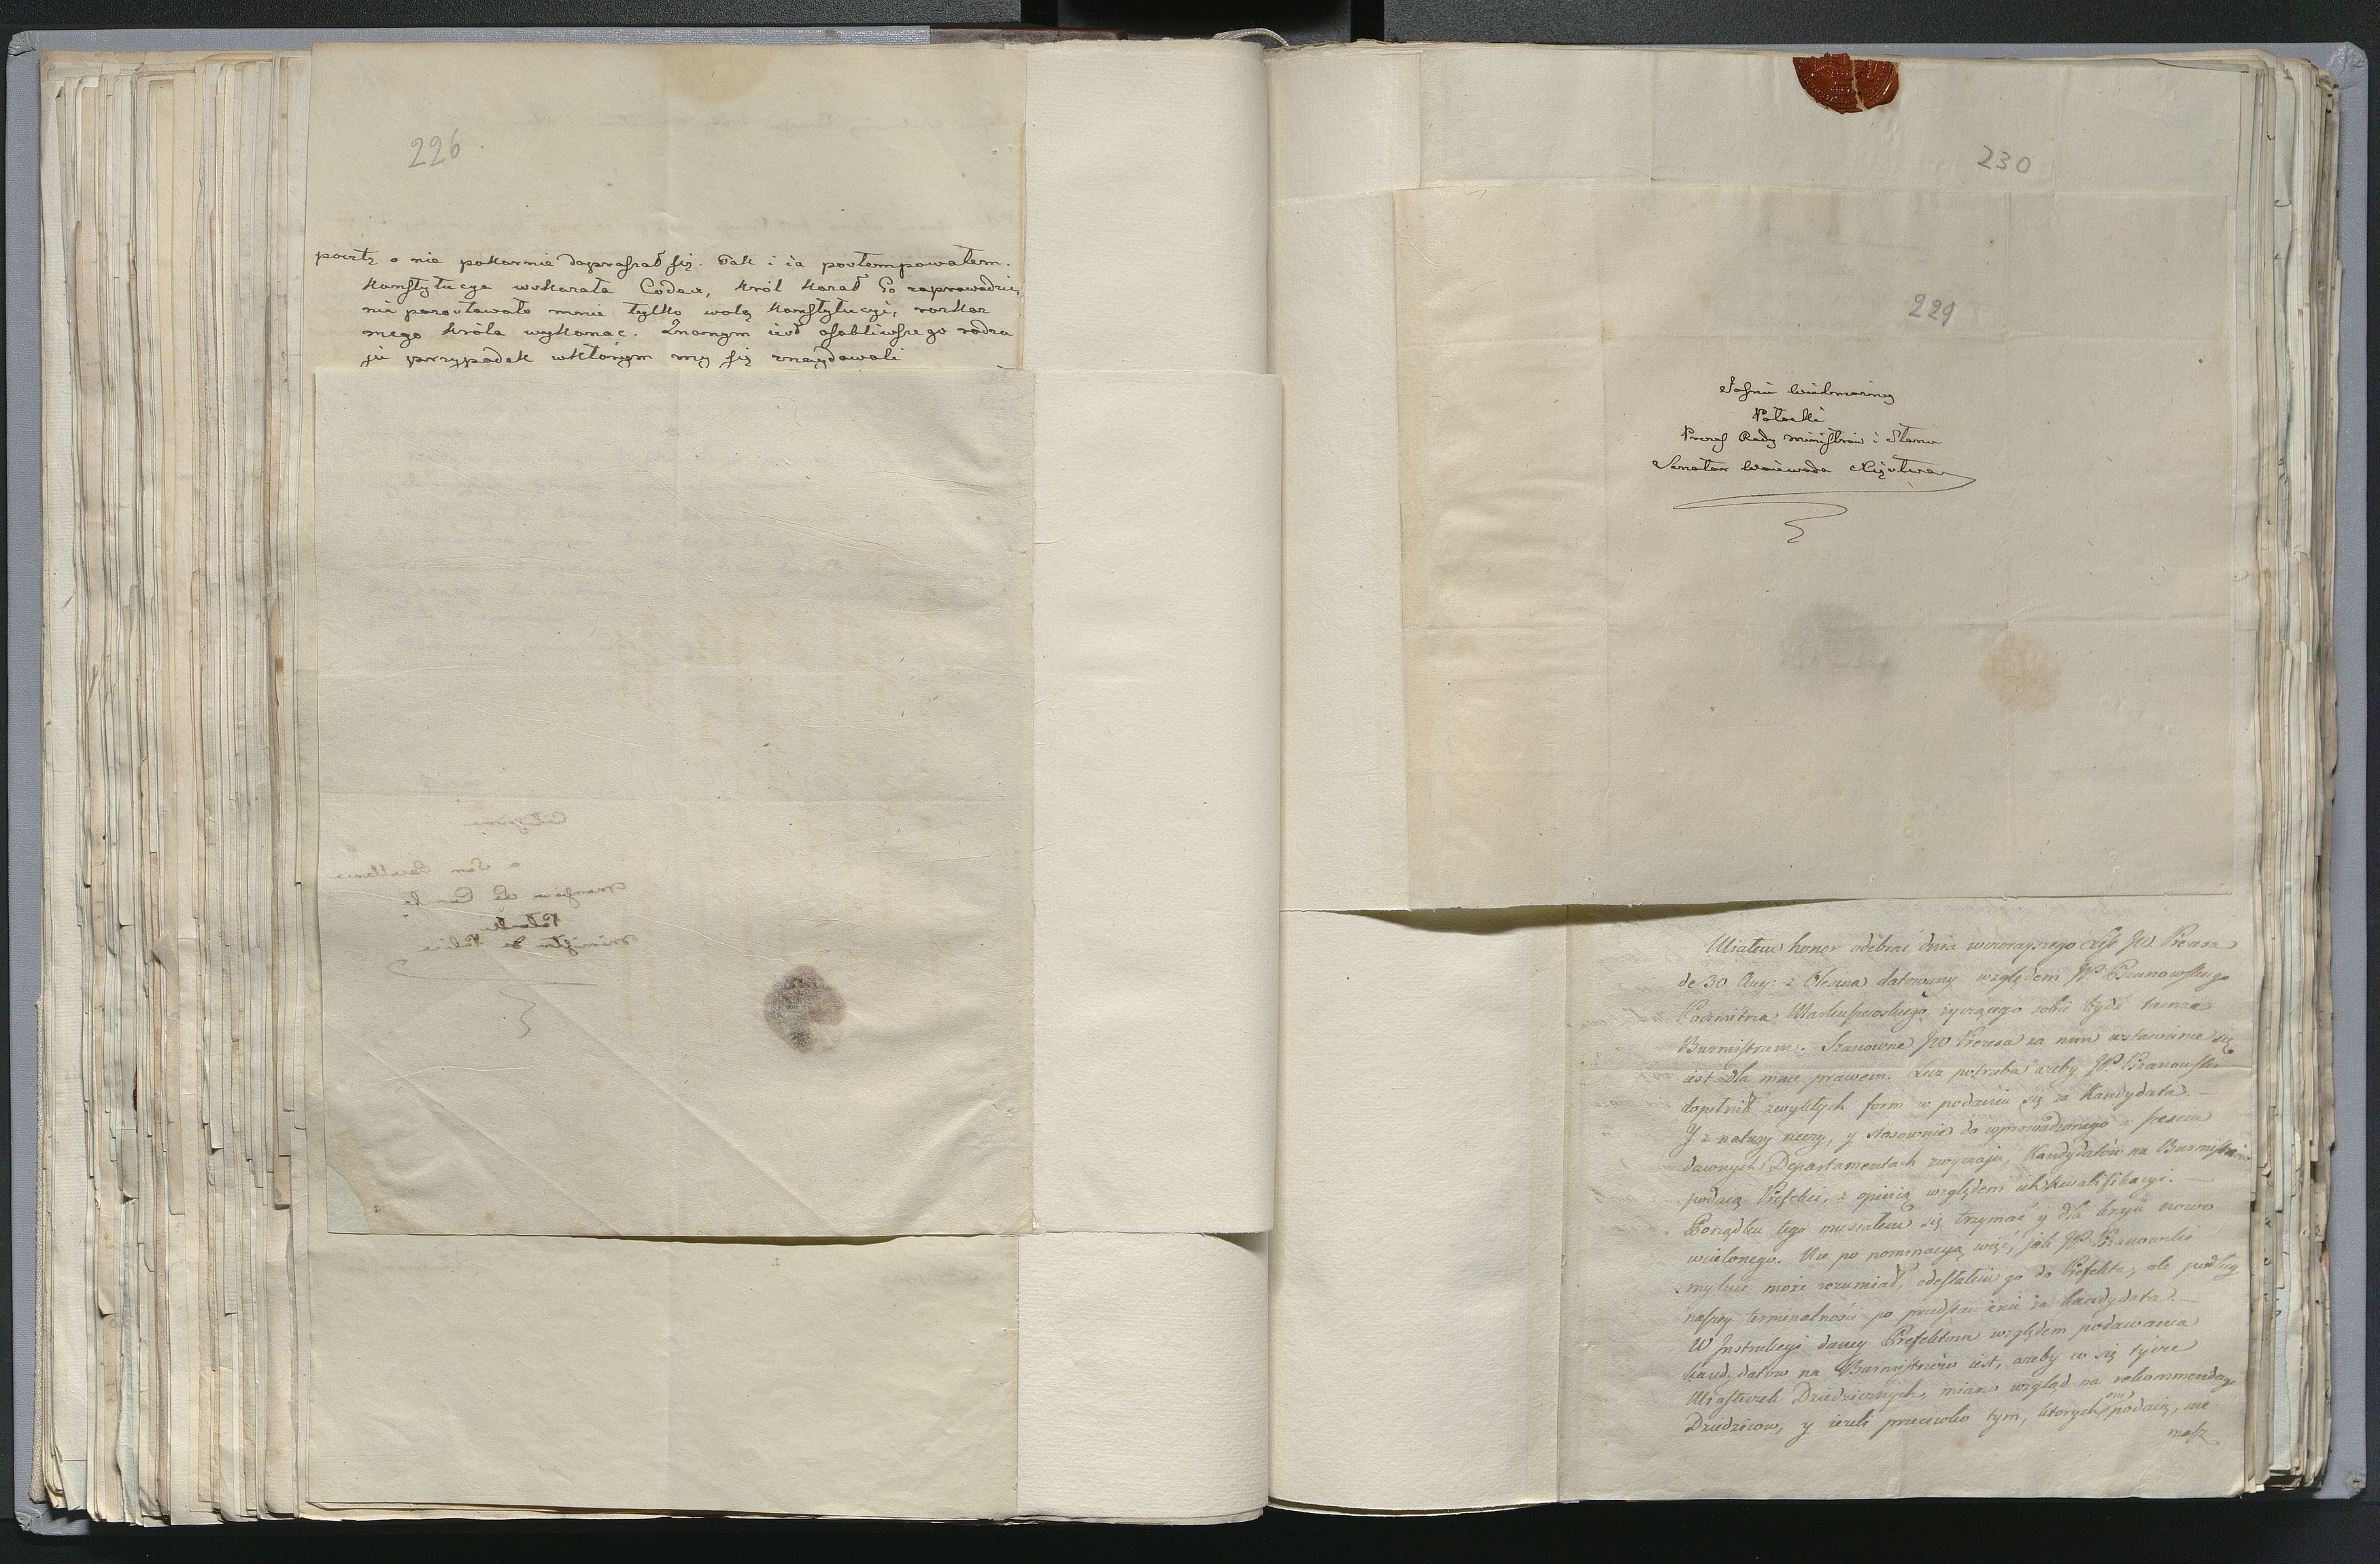 226
pocztę o nie pokornie dopraszał się. Tak i ia postempowałem.
Konstytucya wskazała Codex, Król kazał Go zaprowadzić,
nie pozostawało mnie tylko wolą Konstytucyi, rozkaz
mego Króla wykonac. Znanym iest osobliwszego rodza
ju przypadek wktórym my się znaydowali
230
229
Jaśnie Wielmożny
Potocki
Prezes Rady Ministrów i Stanu
Senator Woiewoda Xięstwa
Miałem honor odebrać dnia wczorayszego List JW. Prezesa
de 30. Aug: z Olesina datowany względem JP. Pzanowskiego
Pocztmistrza Markuszewskiego, życzącego sobie bydź tamże
Burmistrzem. Szanowne JW. Prezesa za nim wstawienie się
iest dla mnie prawem. Lecz potrzeba ażeby JP. Pzanowski
dopełnił zwykłych form w podaniu się za Kandydata. —
Y z natury rzeczy, y stosownie do wprowadzonego w sześciu
dawnych Departamentach zwyczaju, Kandydatów na Burmistrzów
podaią Prefekci, z opinią względem ich kwalifikacyi. —
Porządku tego musiałem się trzymać y dla kraju nowo
wcielonego. Nie po nominacyą więc, jak JP. Pzanowski
mylnie może rozumiał, odesłałem go do Prefekta, ale podług
naszey terminalności po przedstawienie za kandydata. —
W Instrukcyi daney Prefektom względem podawania
kandydatów na Burmistrzów iest, ażeby co się tycze
Miasteczek Dziedzicznych, miano wzgląd na rekommendacye
Dziedziców, y ieżeli przeciwko tym, których oni podaią, nie
masz